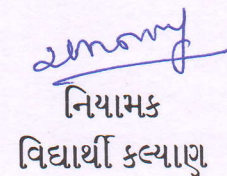 નિયામક
વિદ્યાર્થી કલ્યાણ